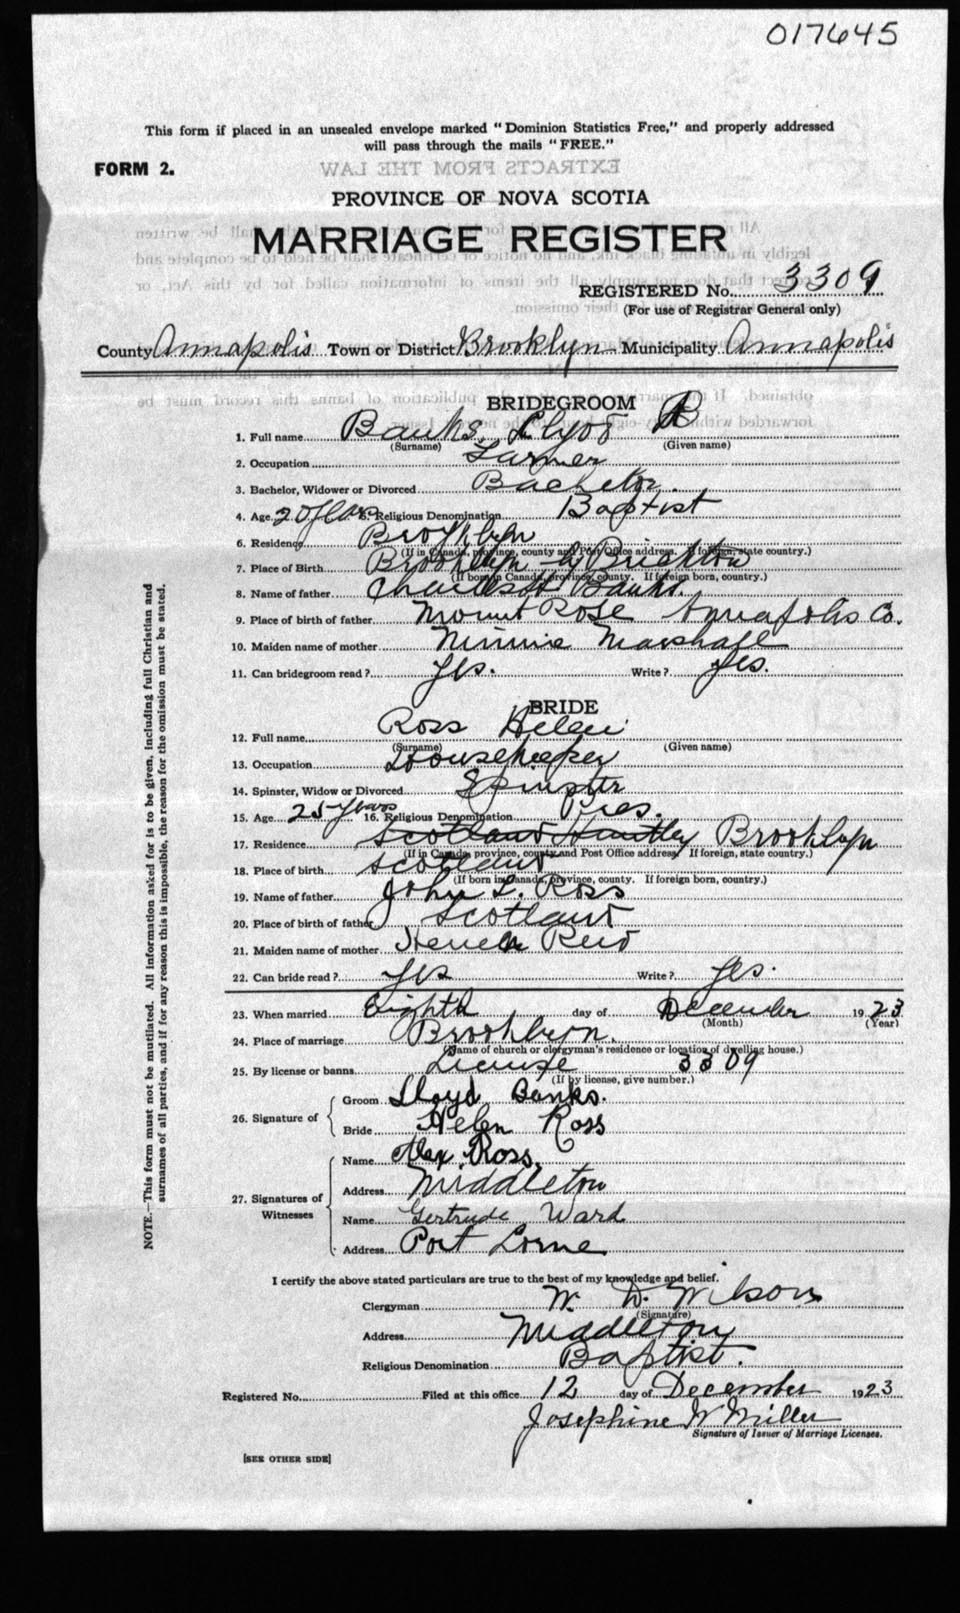 017645
This form if placed in an unsealed envelope marked "Dominion Statistics Free," and properly addressed
will pass through the mails "FREE."
FORM 2.
EXTRACTS FROM THE LAW
PROVINCE OF NOVA SCOTIA
MARRIAGE REGISTER
REGISTERED No. 3309
(For use of Registrar General only)
County Annapolis Town or District Brooklyn Municipality Annapolis
BRIDEGROOM
1. Full name Banks, Lloyd B
(Surname) (Given name)
2. Occupation Farmer
3. Bachelor, Widower or Divorced Bachelor.
4. Age 20 years 5. Religious Denomination Baptist
6. Residence Brooklyn
(If in Canada, province, county and Post Office address. If foreign, state country.)
7. Place of Birth Brooklyn
(If born in Canada, province, county. If foreign born, country.)
8. Name of father Charles Banks.
9. Place of birth of father Mount Rose Annapolis Co.
10. Maiden name of mother Minnie Marshall
11. Can bridegroom read? Yes. Write? Yes.
BRIDE
12. Full name Ross Helen
(Surname) (Given name)
13. Occupation Housekeeper
14. Spinster, Widow or Divorced Spinster
15. Age 25 years 16. Religious Denomination Pres.
17. Residence Scotland Huntley Brooklyn
(If in Canada, province, county and Post Office address. If foreign, state country.)
18. Place of birth Scotland
(If born in Canada, province, county. If foreign born, country.)
19. Name of father John L. Ross
20. Place of birth of father Scotland
21. Maiden name of mother Reid
22. Can bride read? Yes Write? Yes.
23. When married Eighth day of December 1923
(Month) (Year)
24. Place of marriage Brooklyn.
(Name of church or clergyman's residence or location of dwelling house.)
25. By license or banns License 3309
(If by license, give number.)
26. Signature of
Groom Lloyd Banks.
Bride Helen Ross
27. Signatures of Witnesses
Name Alex. Ross.
Address Middleton
Name Gertrude Ward
Address Port Lorne
I certify the above stated particulars are true to the best of my knowledge and belief.
Clergyman W. D. Wilson
(Signature)
Address Middleton
Religious Denomination Baptist.
Registered No. Filed at this office 12 day of December 1923
Josephine W Miller
Signature of Issuer of Marriage Licenses.
[SEE OTHER SIDE]
NOTE.—This form must not be mutilated. All information asked for is to be given, including full Christian and
surnames of all parties, and if for any reason this is impossible, the reason for the omission must be stated.